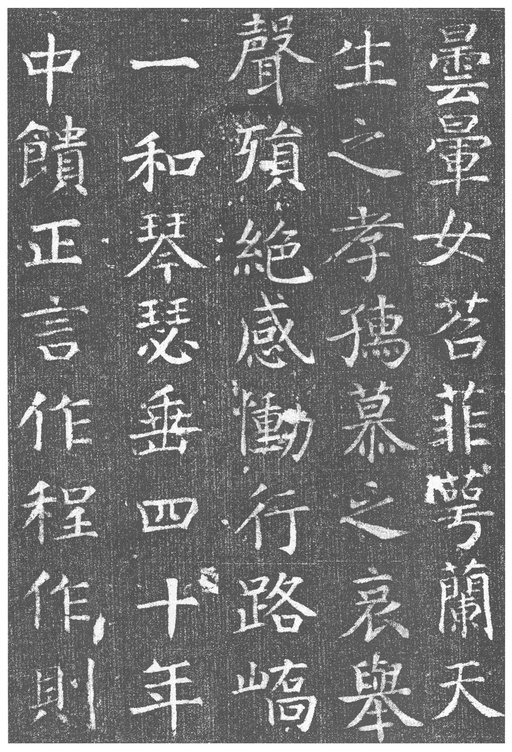 曇暈女苕菲萼蘭天
生之孝孺慕之哀舉
聲殞絕感慟行路嶠
一和琴瑟垂四十年
中饋正言作程作則